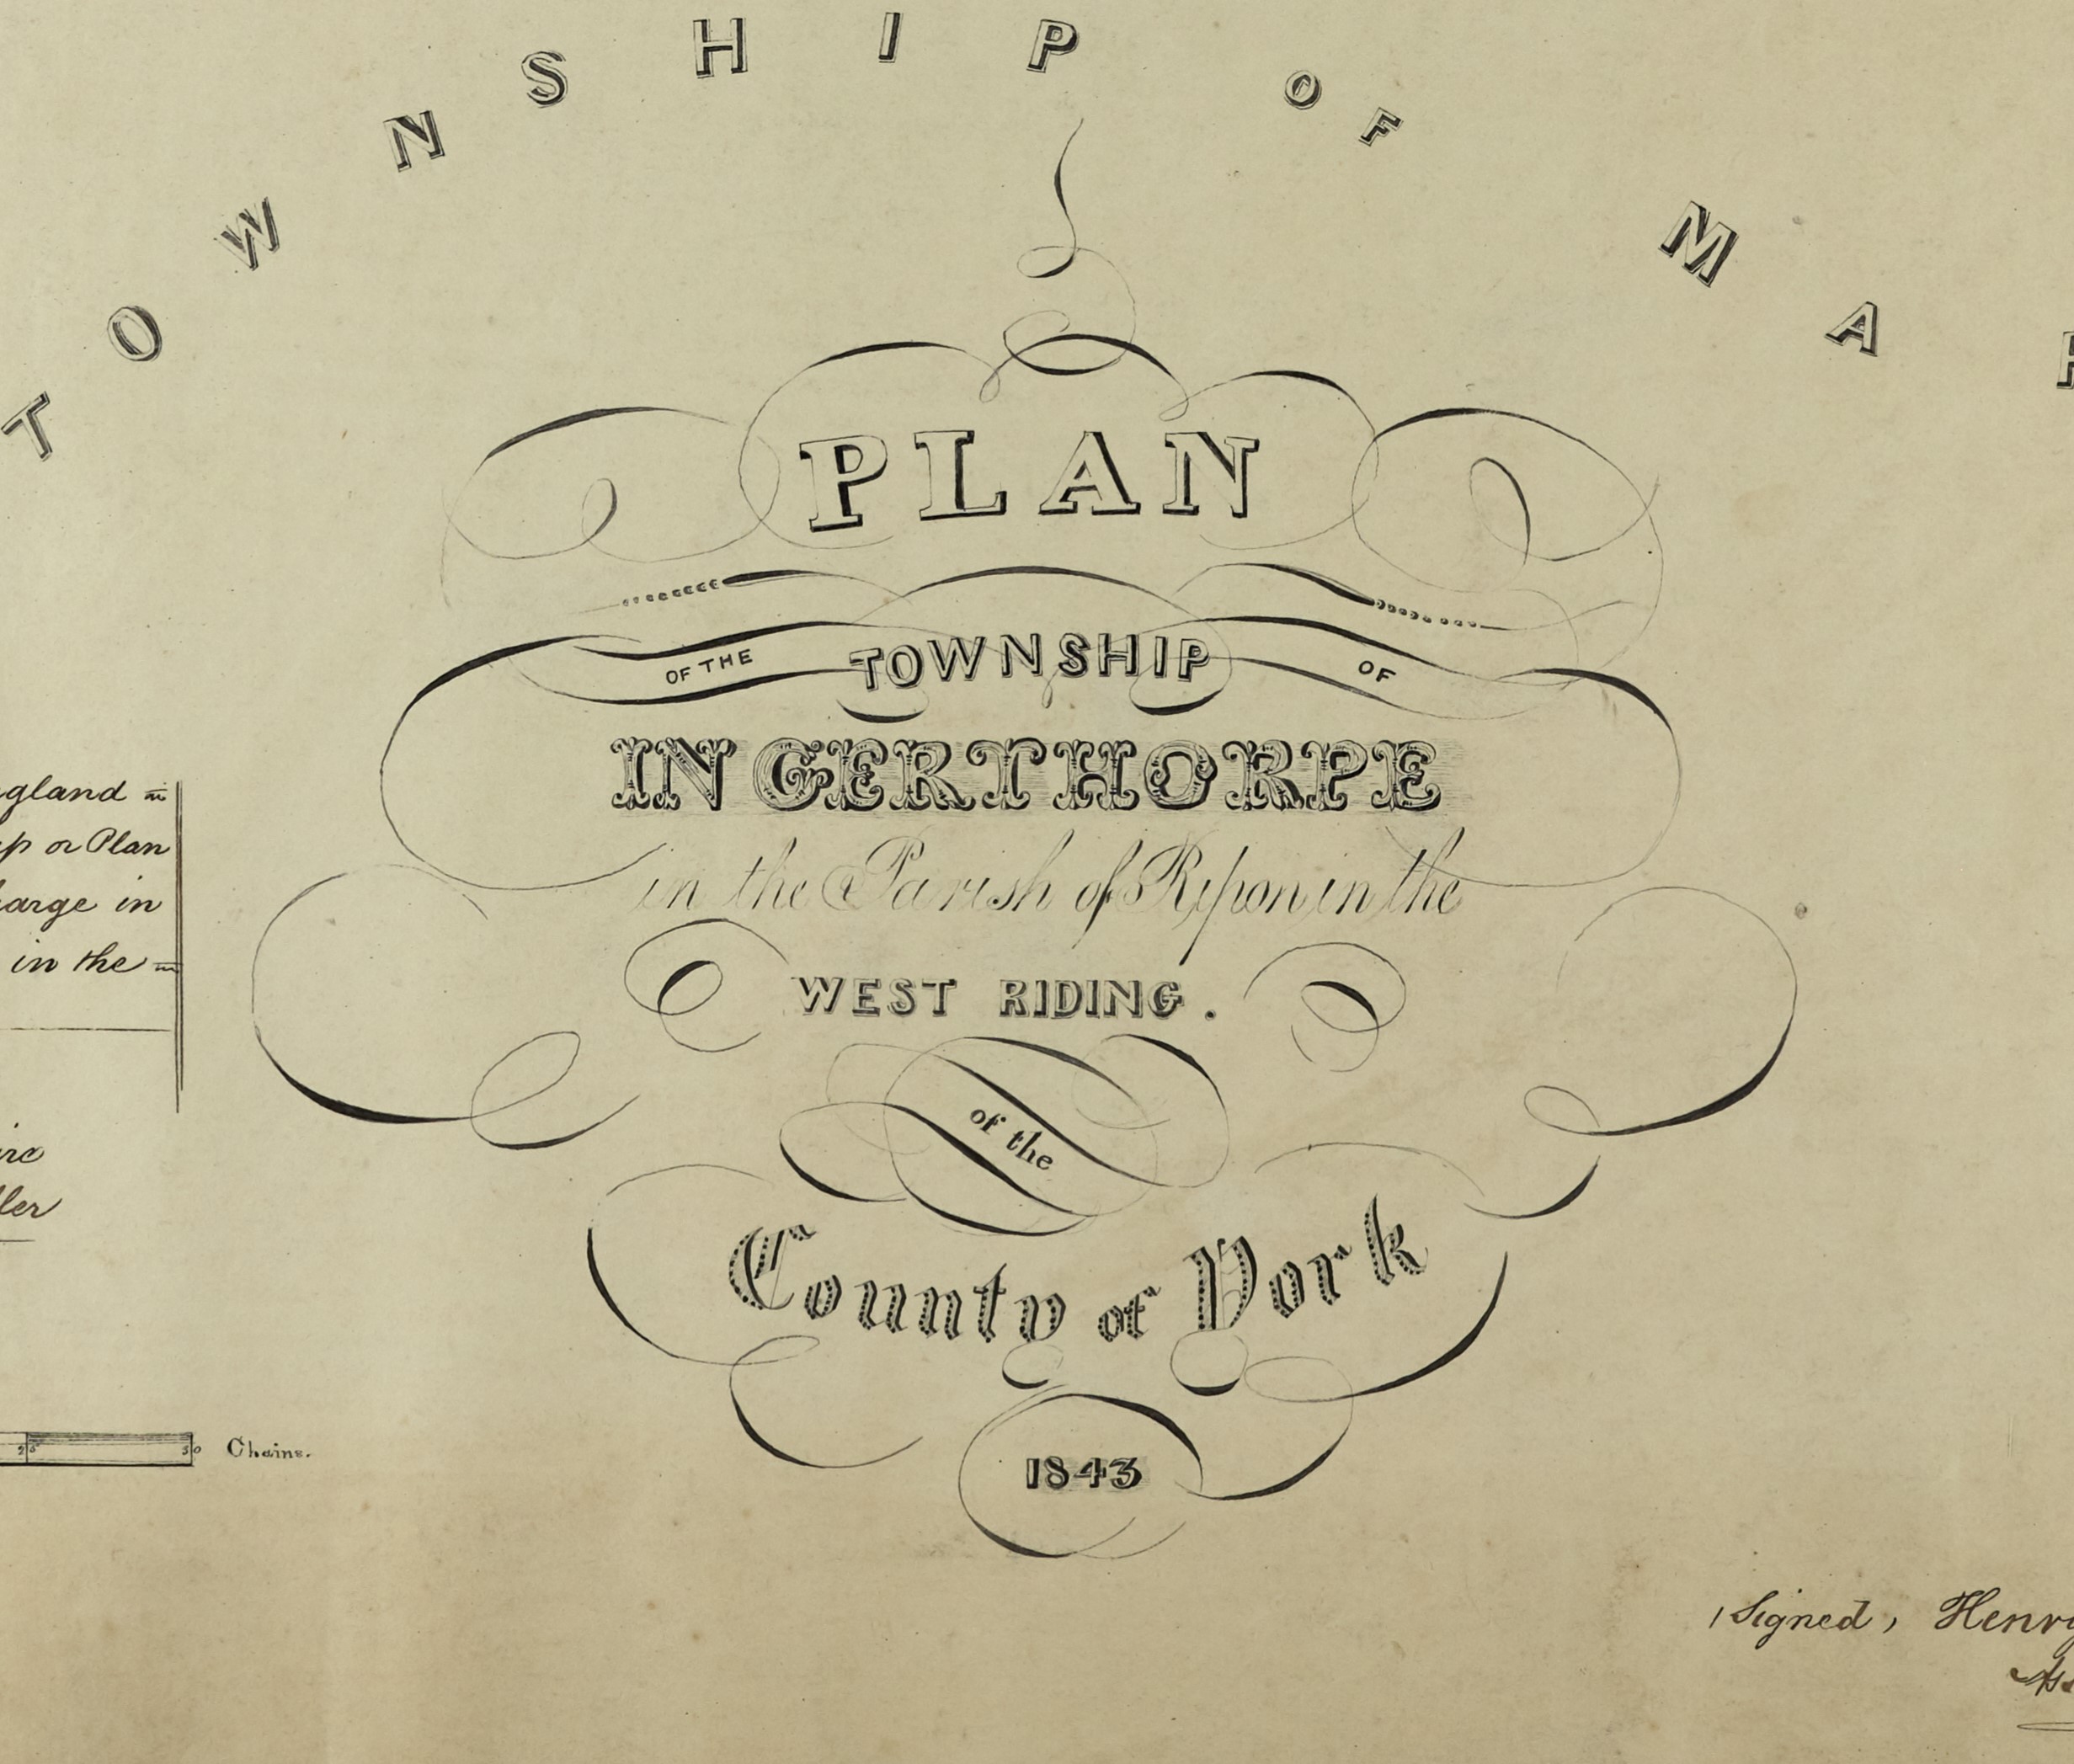 TOWNSHIP OF MA
PLAN
OF THE TOWNSHIP OF
INGERTHORPE
in the Parish of Ripon in the
WEST RIDING.
of the
County of York
1843
gland
p or Plan
arge in
in the
ire
ler
25 50 Chains.
Signed, Henry